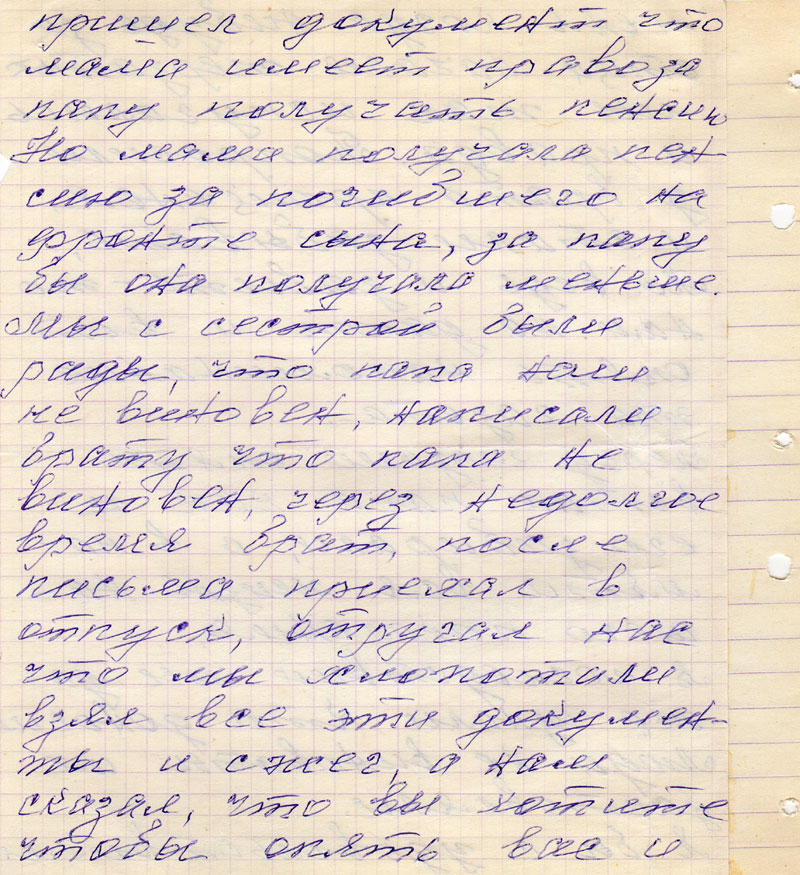 пришел документ что
мама имеет право за
папу получать пенсию
Но мама получала пен-
сию за погибшего на
фронте сына, за папу
бы она получала меньше.
Мы с сестрой были
рады, что папа наш
не виновен, написали
брату что папа не
виновен, через недолгое
время брат, после
письма приехал в
отпуск, отругал нас
что мы хлопотали
взял все эти докумен-
ты и сжег, а нам
сказал, что вы хотите
чтобы опять вас и